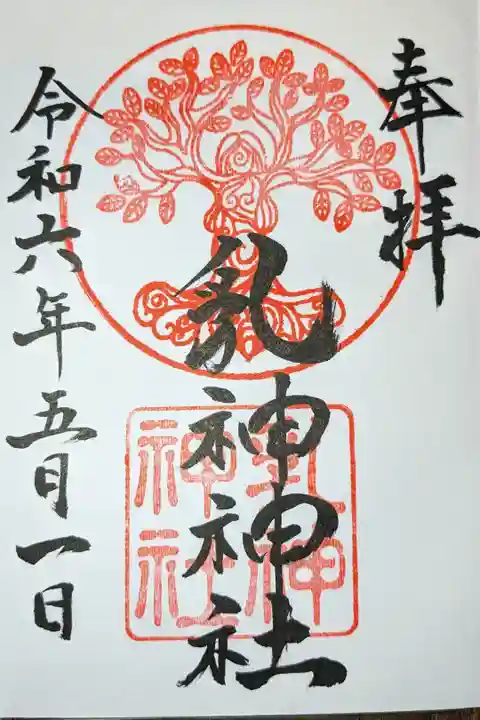 奉拝
乳神神社
乳神
神社
令和六年五月一日